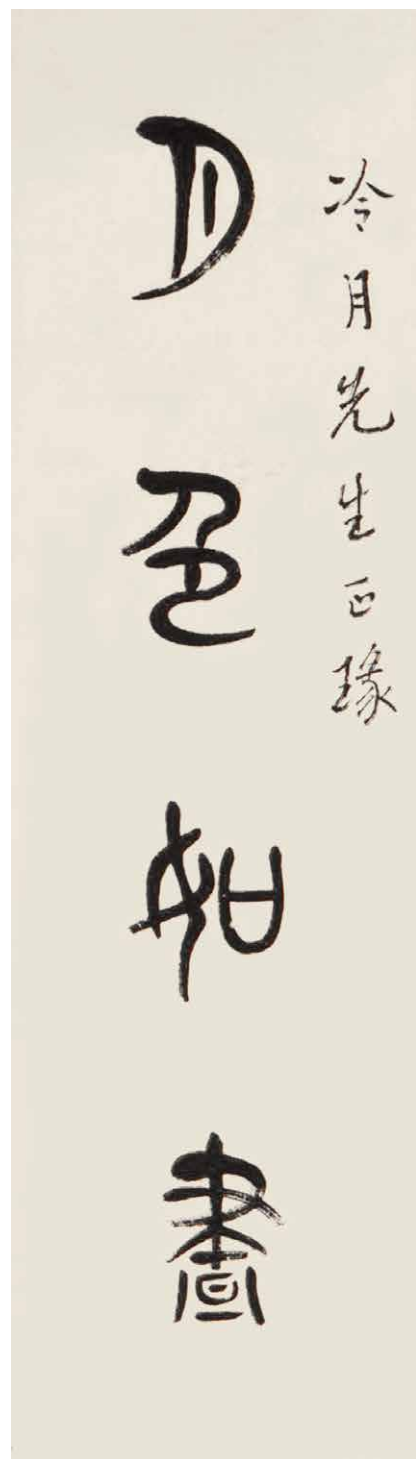 冷月先生正瑑
月色如晝